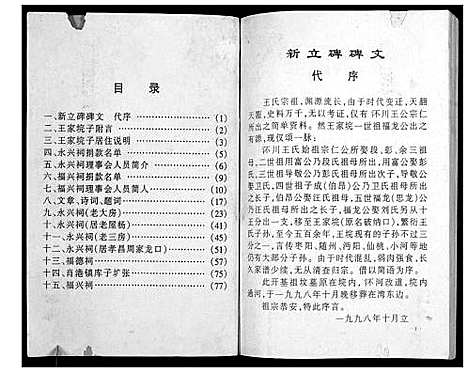 目 录
一、新立碑碑文 代序 (1)
二、王家垸子附言 (2)
三、王家垸子居住说明 (3)
四、永兴祠捐款名单 (4)
五、永兴祠理事会人员简介 (6)
六、福兴祠捐款名单 (5)
七、福兴祠理事会人员简人 (7)
八、文章、诗词、题词 (9)
九、永兴祠(老大房) (23)
十、永兴祠(居老屋杨) (35)
十一、永兴祠(老三房) (45)
十二、永兴祠(居孝昌周家龙口) (51)
十三、福德祠 (57)
十四、肖港镇库子扩张 (65)
十五、福兴祠 (77)
新立碑碑文
代序
王氏宗祖,渊源流长,由于时代变迁,天翻
天覆,史料万千,无以考证,仅有怀川王公宗仁
所出之简单资料。然王家垸一世祖福龙公出之
有源,仅仅颂一脉:
怀川王氏始祖宗仁公所娶段、彭、余三祖
母,二世祖用富公乃段氏祖母所出,用富公娶彭
氏,三世祖导敬公乃彭氏祖母所出次子,导敬公
娶卫氏,四世祖子成(伯昂)公乃卫氏祖母所出
之长子,伯昂公娶汪氏祖母,五世福龙(思龙)公
乃汪氏祖母所出之长子,福龙公娶刘氏另从十
王分出一支,移至王家垸(原名破纳口),繁衍王
氏子孙,至今五百余年,王垸现有的子孙不过三
分之一,言传枣阳、随州、沔阳、仙桃、小河等地
仍有大部分子孙。由于时代混乱,弱肉强食,长
久家谱少续,无从清查归宗。借以简语为序。
此开基祖坟墓原在垸内,怀河改道,垸内
通河,于一九九八年十月晚移葬在湾东边。
祖宗恭安,特此序言。
一九九八年十月立